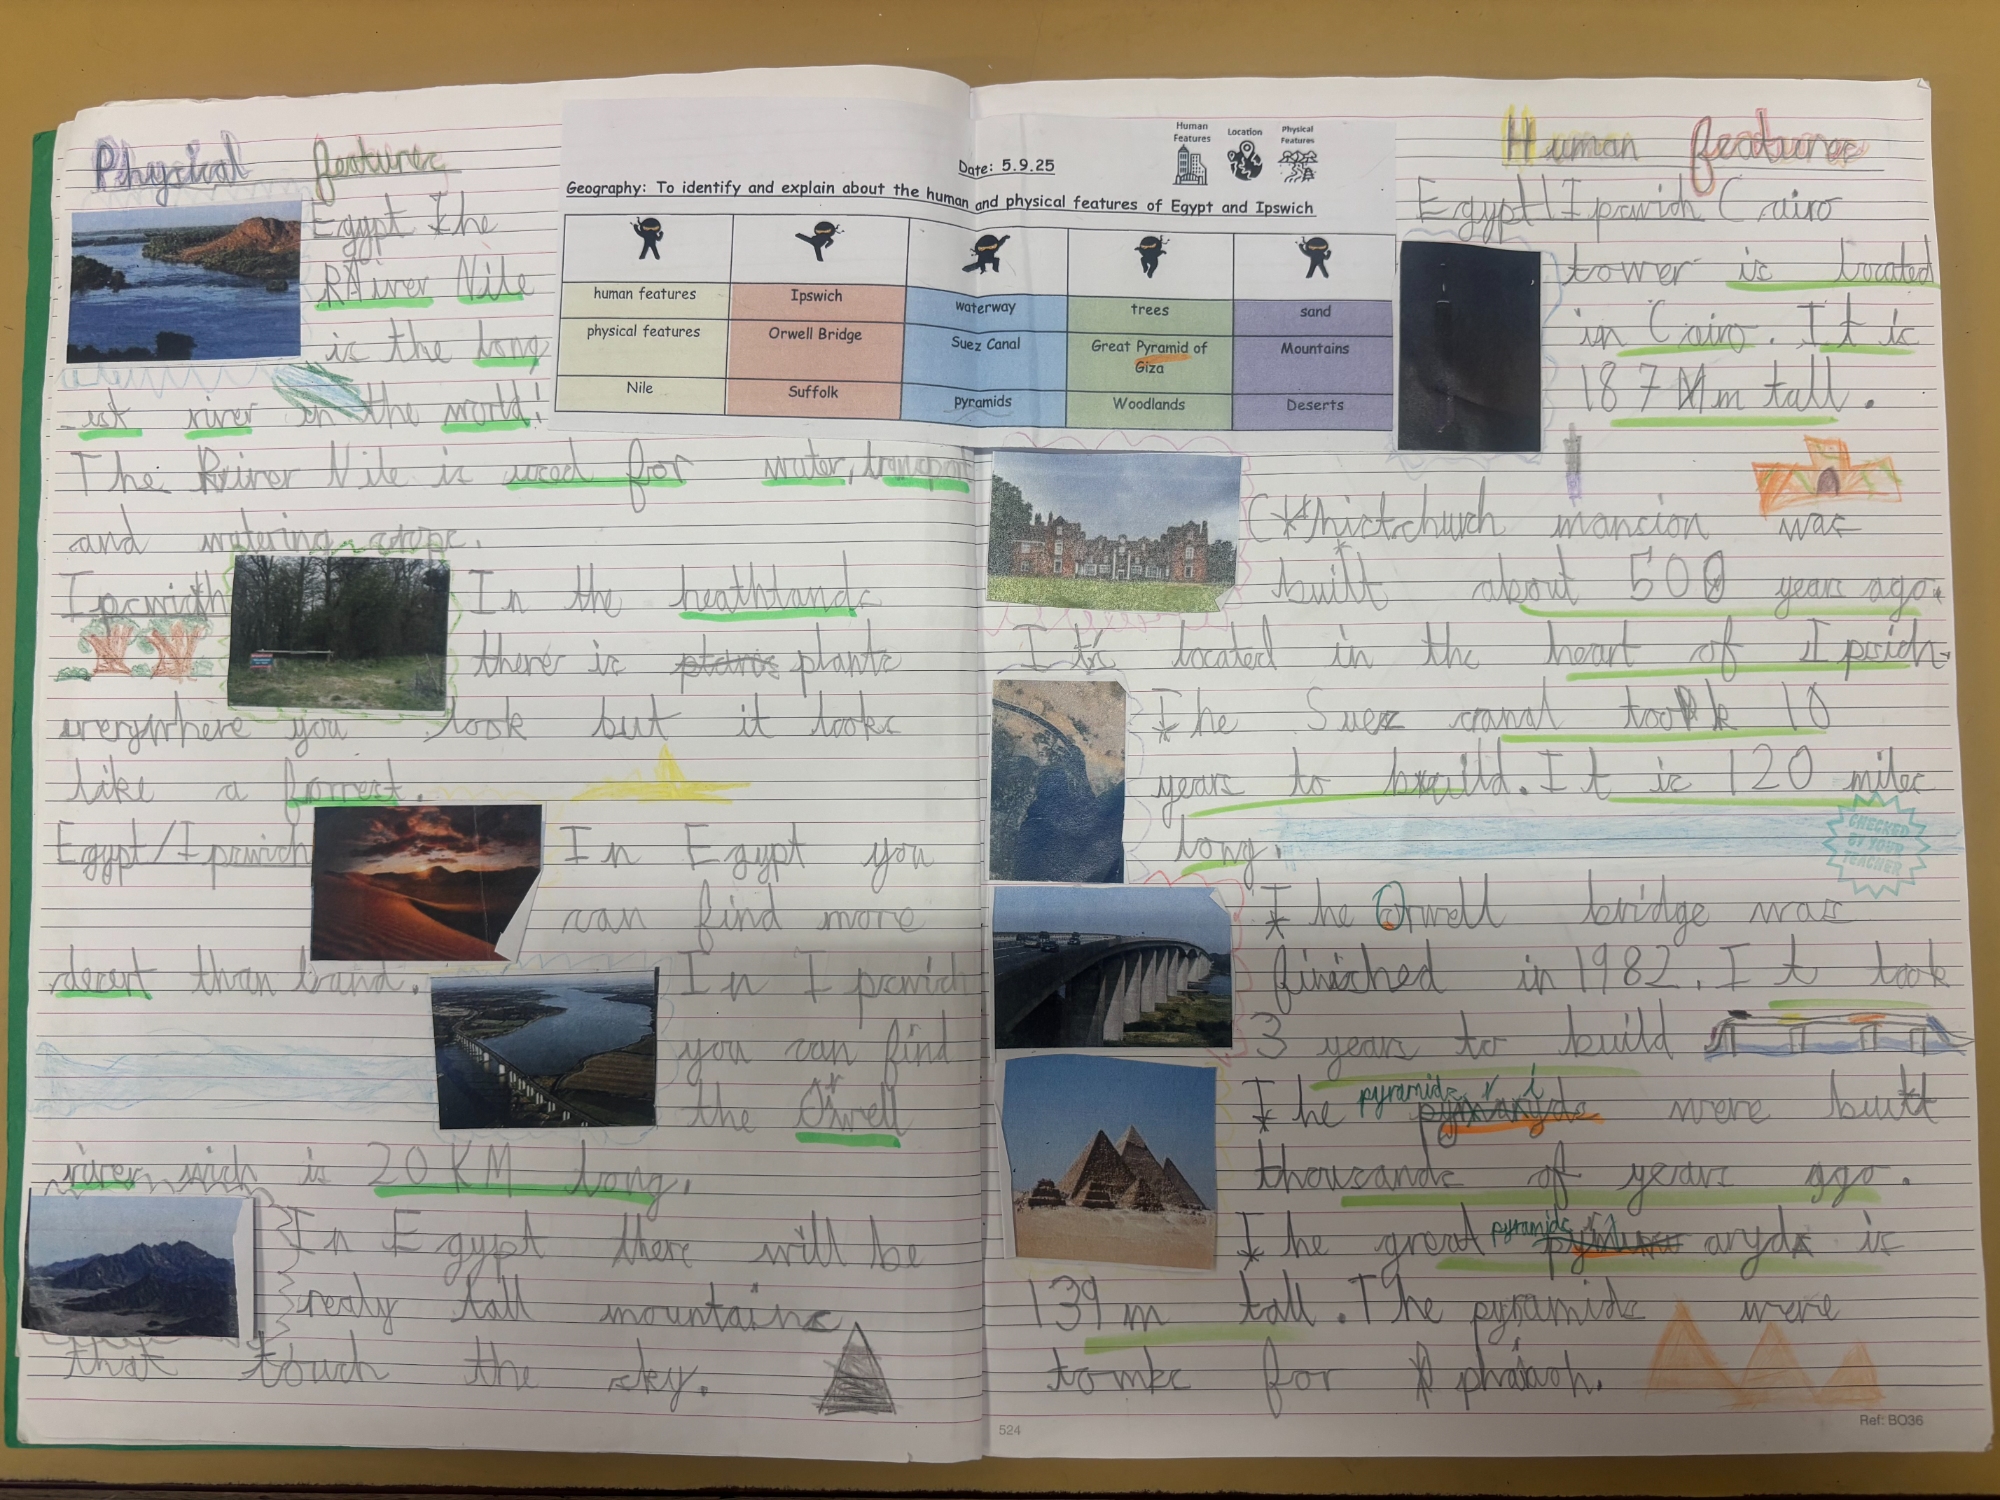 Physical features
Date: 5.9.25
Human Features
Location
Physical Features
Geography: To identify and explain about the human and physical features of Egypt and Ipswich
human features
Ipswich
waterway
trees
sand
physical features
Orwell Bridge
Suez Canal
Great Pyramid of Giza
Mountains
Nile
Suffolk
pyramids
Woodlands
Deserts
Egypt The
River Nile
is the long
-est river in the world!
The River Nile is used for water, transport
and watering crops.
Ipswich In the heathlands
there is plants
everywhere you look but it looks
like a forrest.
Egypt/Ipswich In Egypt you
can find more
desert than land. In Ipswich
you can find
the Orwell
river wich is 20 KM long.
In Egypt there will be
realy tall mountains
that touch the sky.
Human features
Egypt/Ipswich Cairo
tower is located
in Cairo. It is
187 m tall.
Christchurch mansion was
built about 500 years ago.
It's located in the heart of Ipsich.
The Suez canal took 10
years to build. It is 120 miles
long.
CHECKED BY YOUR TEACHER
The Orwell bridge was
finished in 1982. It took
3 years to build
The pyramids were built
thousands of years ago.
The great pyramids is
139 m tall. The pyramids were
tombs for pharaoh.
524
Ref: BO36